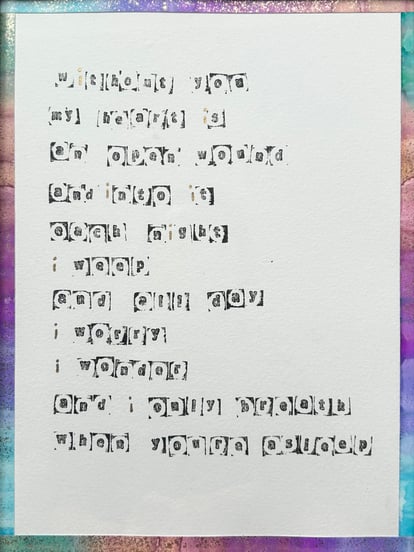 without you
my heart is
an open wound
and into it
each night
i weep
and all day
i worry
i wonder
and i only breath
when youre asleep